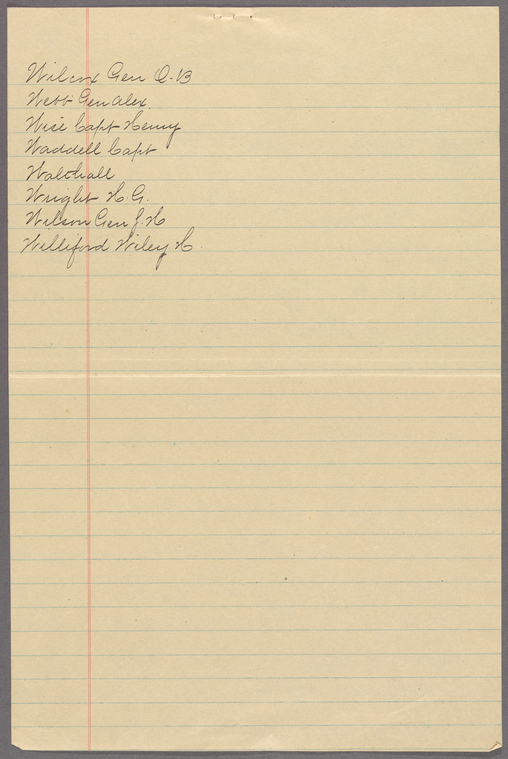 Wilcox Gen O.B
Webb Gen Alex.
Wise Capt Henry
Waddell Capt
Walthall
Wright H.G.
Wilson Gen J.H
Williford Wiley H.